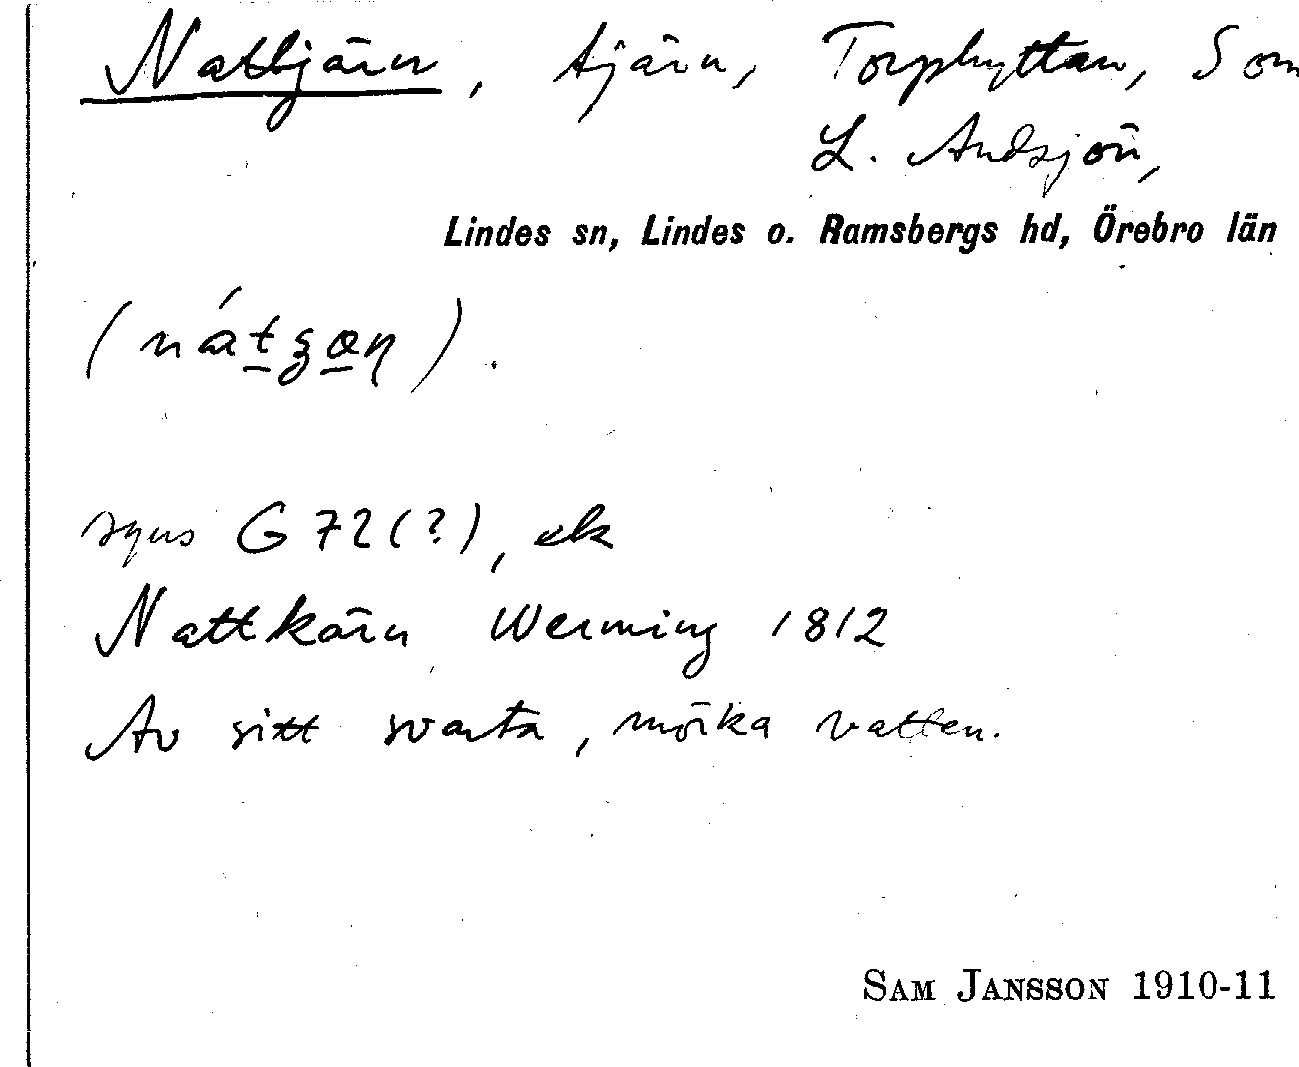 Nattjärn, tjärn, Torphyttan, S om
L. Andsjön,
Lindes sn, Lindes o. Ramsbergs hd, Örebro län
syns G 72 (?), ek
Nattkärn Werming 1812
Av sitt svarta, mörka vatten.
SAM JANSSON 1910-11